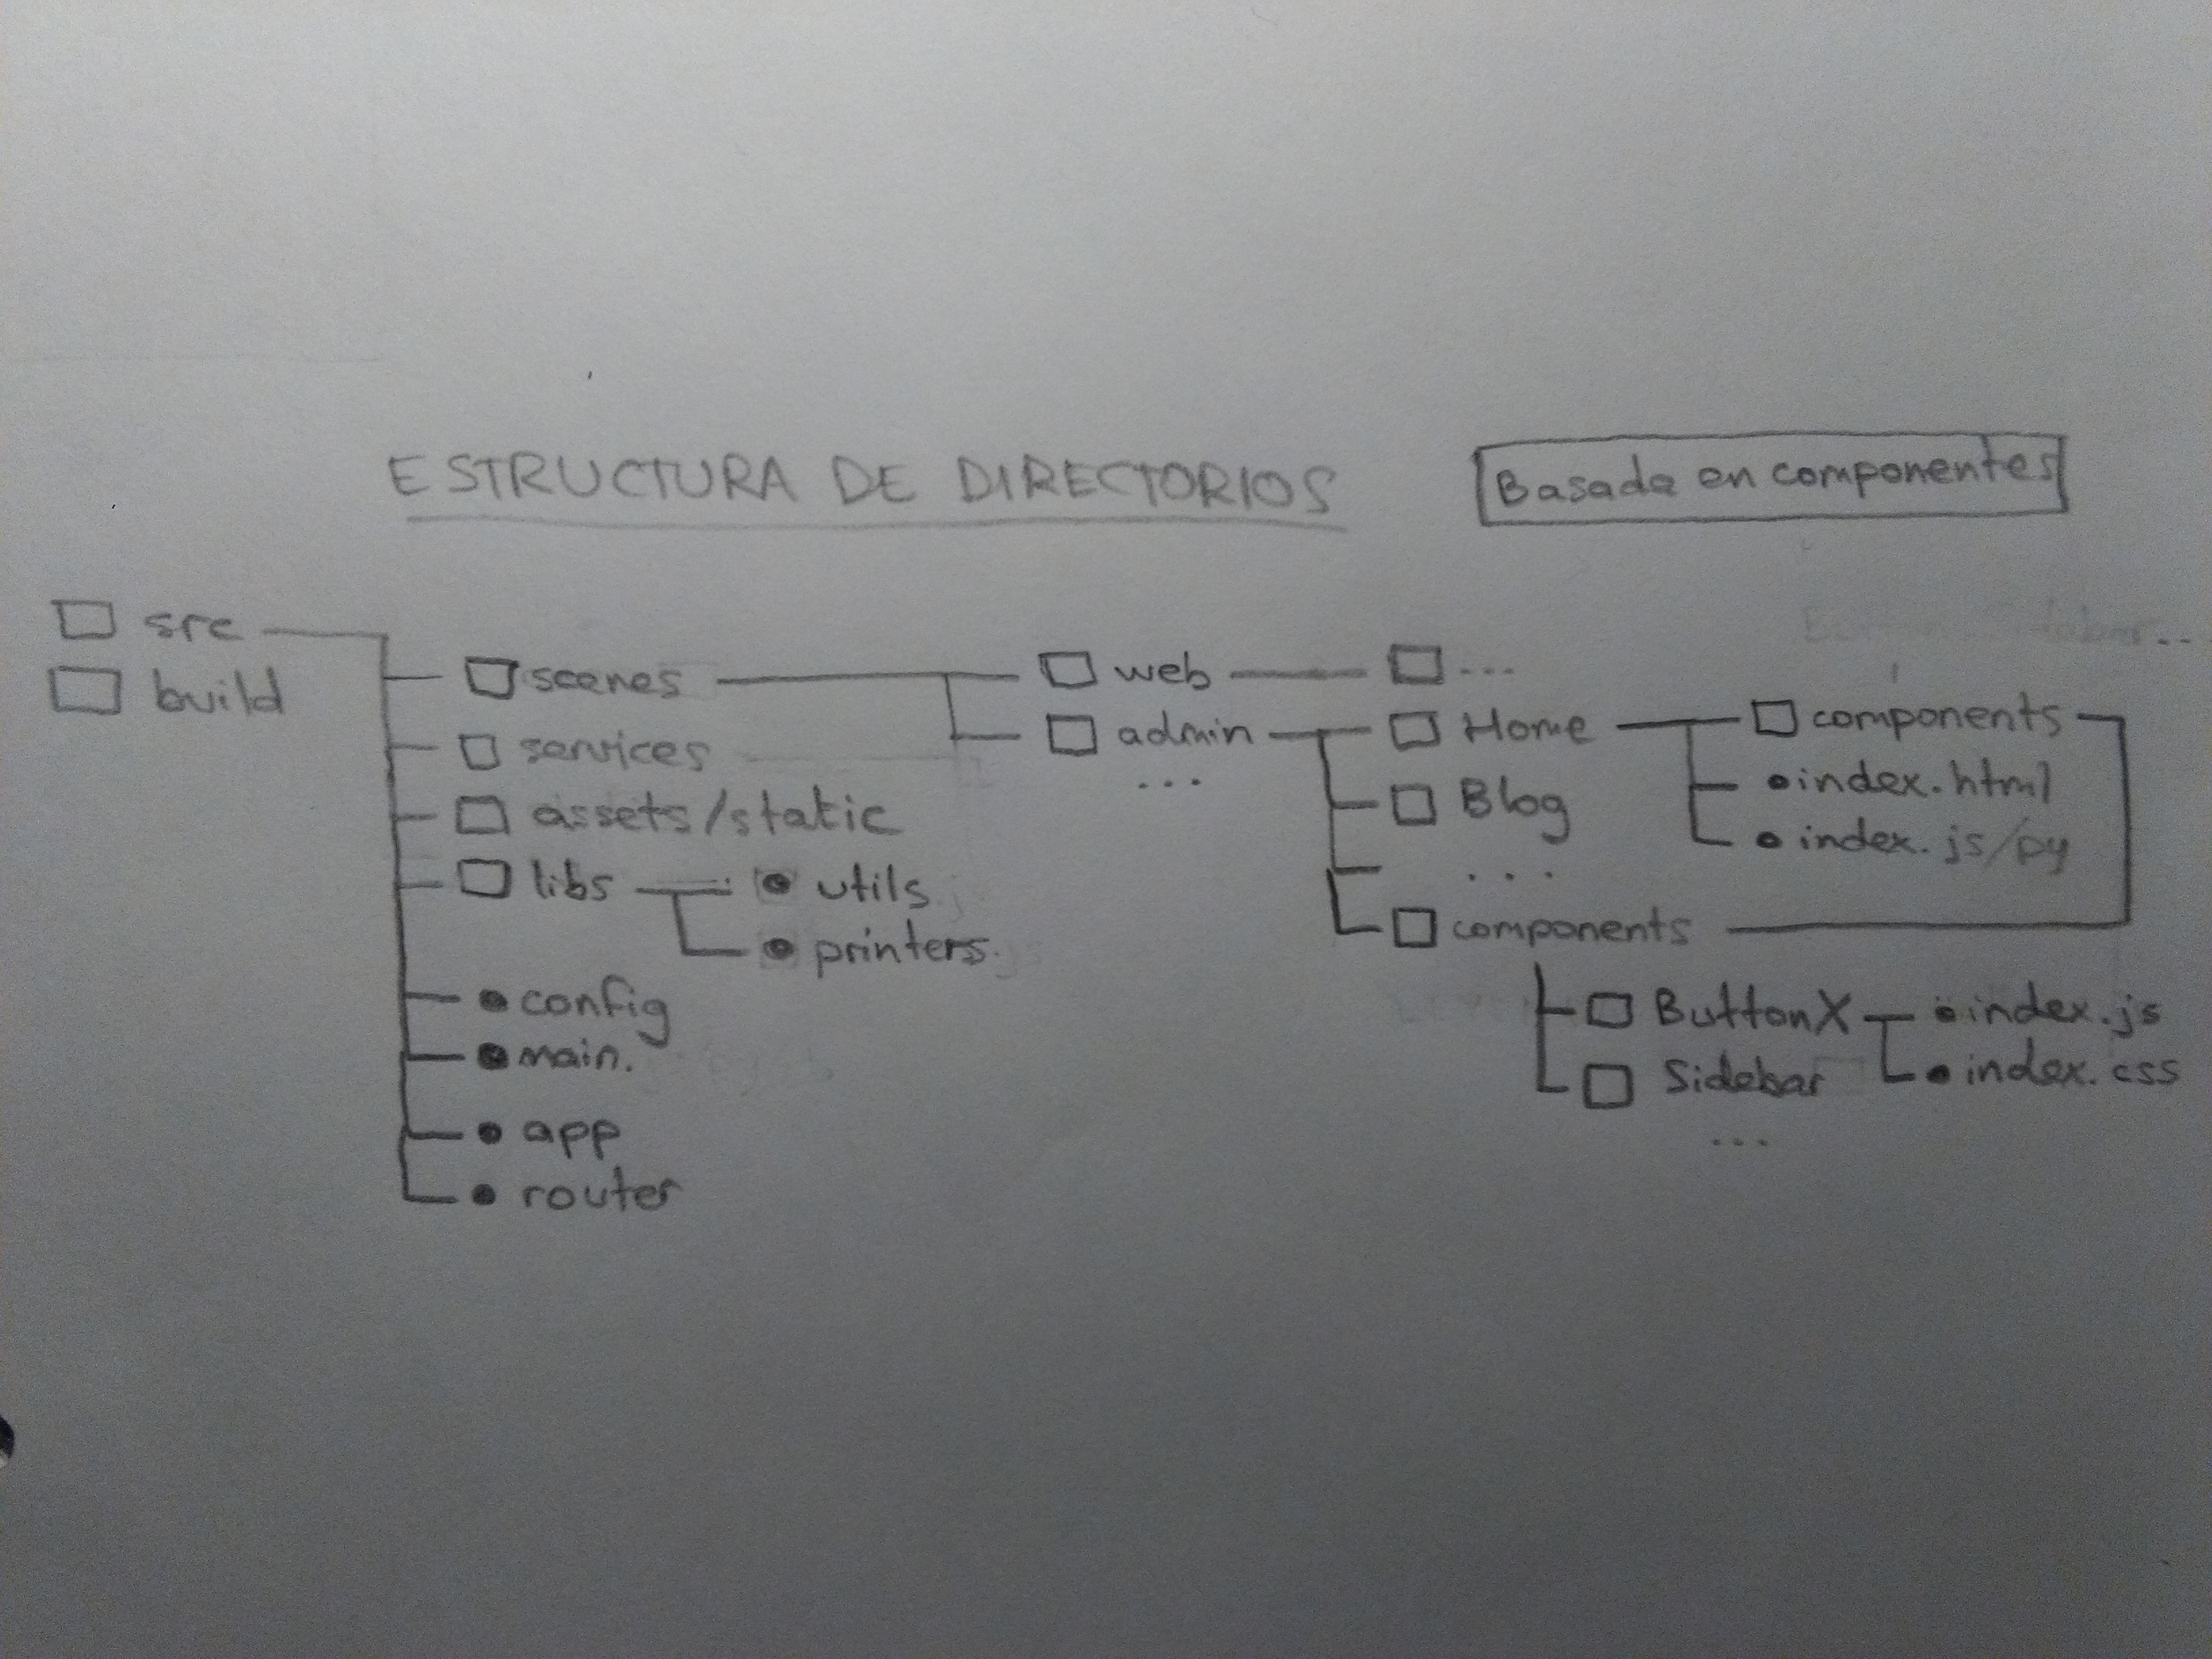 ESTRUCTURA DE DIRECTORIOS
Basada en componentes
src
build
scenes
services
assets/static
libs
utils
printers.
config
main.
app
router
web
admin
...
...
Home
Blog
...
components
components
index.html
index.js/py
ButtonX
Sidebar
...
index.js
index.css